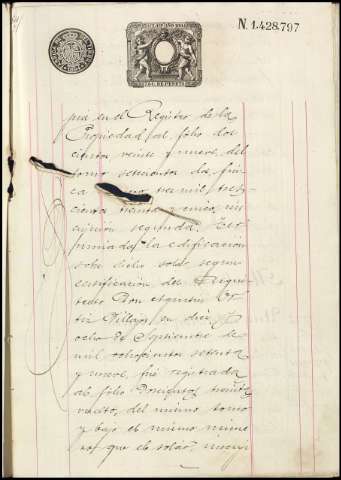 N. 1.428.797
pia en el Registro de la
Propiedad, al folio dos
cientos veinte y nueve, del
tomo setecientos dos, fin
ca tres mil, tres
cientos treinta y cinco, ins
cripcion segunda. Ter
minada la edificacion
sobre dicho solar, segun
certificacion del Arqui
tecto Don Agustin Or
tiz Villajos, en diez y
ocho de Septiembre de
mil ochocientos setenta
y nueve, fué registrada
al folio doscientos treinta
vuelto, del mismo tomo
y bajo el mismo nume
ro que el solar, inscrip